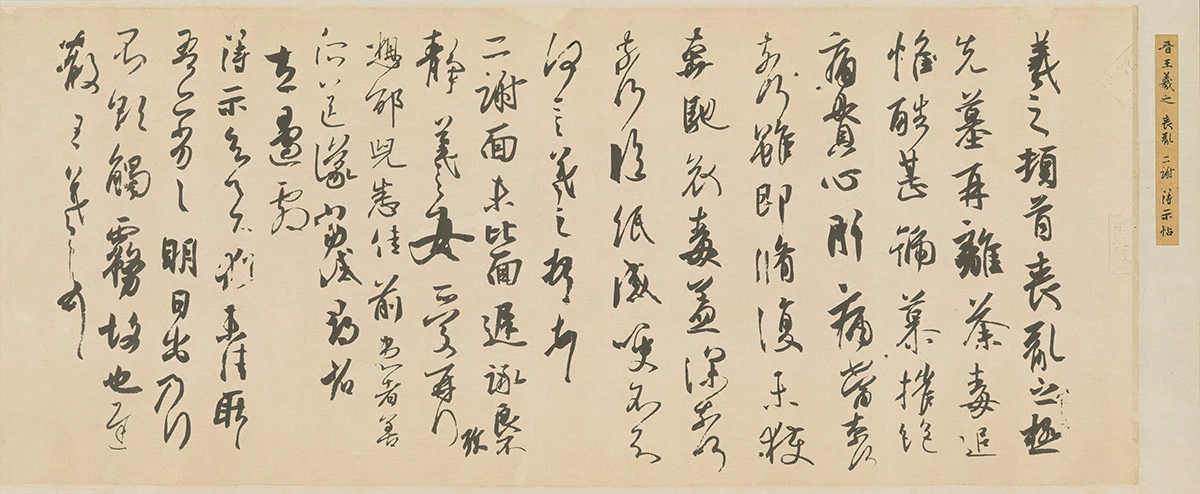 晉王羲之 喪亂 二謝 得示帖
羲之頓首喪亂之極
先墓再離荼毒追
惟酷甚號慕摧絕
痛貫心肝痛當奈何
奈何雖即脩復未獲
奔馳哀毒益深奈何
奈何臨紙感哽不知
何言羲之頓首頓首
二謝面未比面遲詠良不
靜羲之女愛再拜
想邰兒悉佳前患者善
所送議當試尋省
左邊劇
得示知足下猶未佳耿耿
吾亦劣劣明日出乃行
不欲觸霧故也遲
散王羲之頓首